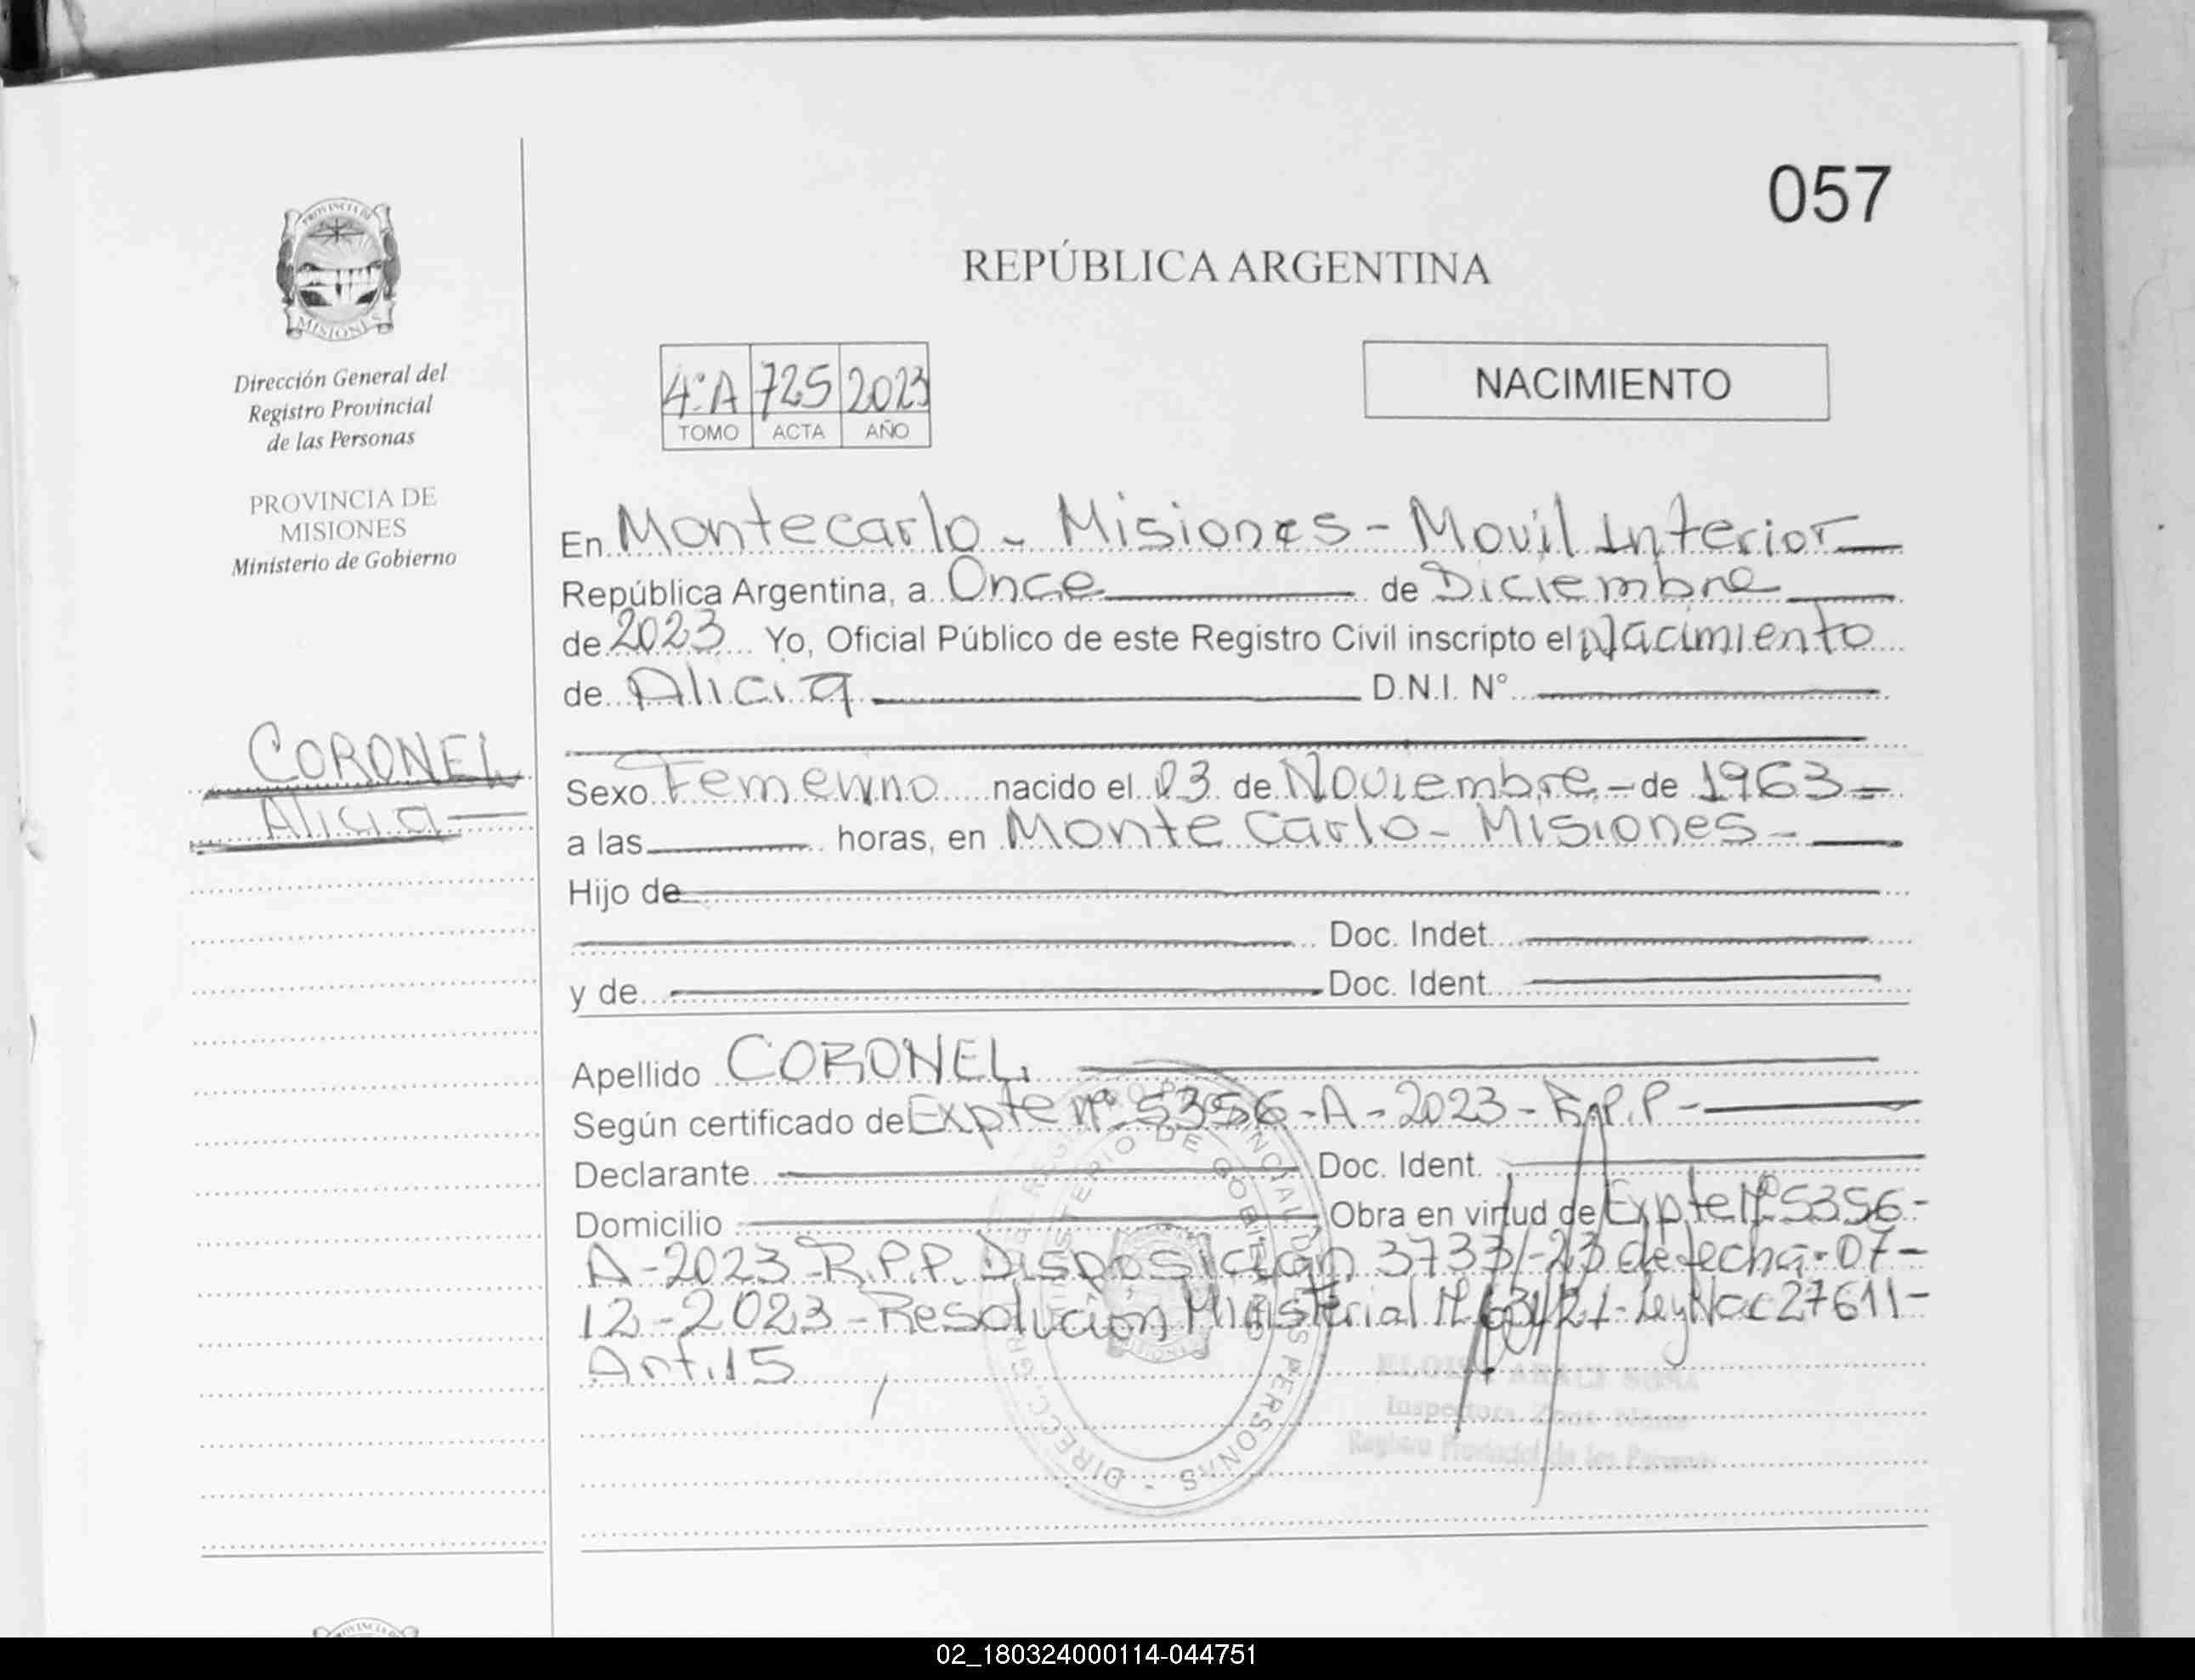 057
REPÚBLICA ARGENTINA
PROVINCIA DE
MISIONES
Dirección General del
Registro Provincial
de las Personas
PROVINCIA DE
MISIONES
Ministerio de Gobierno
CORONEL
Alicia
4º A 725 2023
TOMO ACTA AÑO
NACIMIENTO
En Montecarlo - Misiones - Movil Interior
República Argentina, a Once de Diciembre
de 2023 Yo, Oficial Público de este Registro Civil inscripto el Nacimiento
de Alicia D.N.I. N°
Sexo Femenino nacido el 03 de Noviembre - de 1963 -
a las horas, en Monte Carlo - Misiones -
Hijo de
Doc. Indet.
y de Doc. Ident.
Apellido CORONEL
Según certificado de Expte nº 5356 - A - 2023 - R.P.P -
Declarante Doc. Ident.
Domicilio Obra en virtud de Expte Nº 5356 -
A - 2023 - R.P.P. Disposición 3733/-23 de fecha - 07 -
12 - 2023 - Resolucion Ministerial Nº /21 - Ley Nac 27611 -
Art. 15
DIRECC. GRAL. DEL REGISTRO PROVINCIAL DE LAS PERSONAS -
MINISTERIO DE GOBIERNO
MISIONES
Inspectora Zona
Registro Provincial de las Personas
02_180324000114-044751